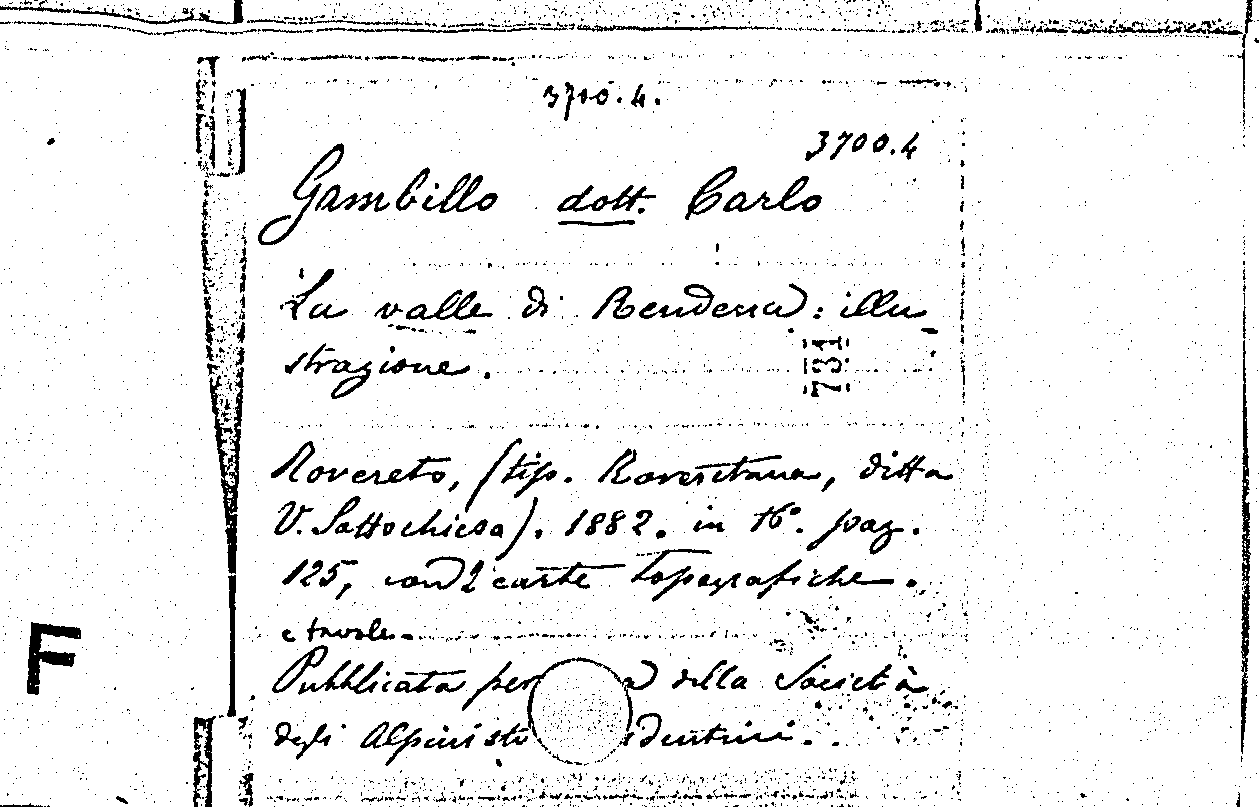 3700.4.
3700.4
Gambillo dott. Carlo
La valle di Rendena: illu-
strazione.
731
Rovereto, (tip. Roveretana, ditta
V. Sottochiesa). 1882. in 16°. pag.
125, con 2 carte topografiche.
e tavole.
Pubblicata per della Società
degli Alpinisti
F